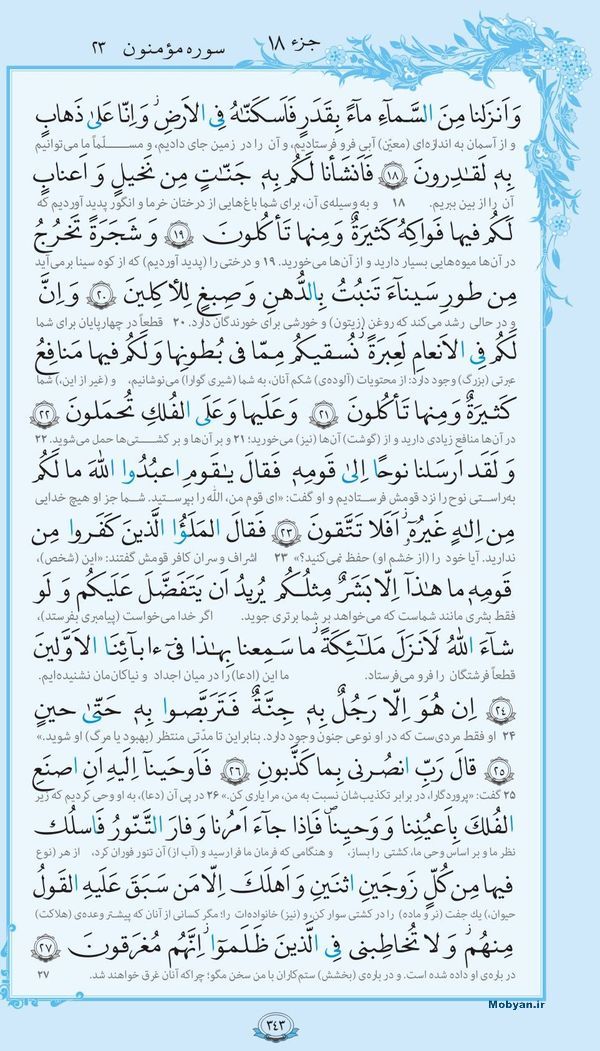 جزء ۱۸ سوره مؤمنون ۲۳
وَ اَنزَلنا مِنَ السَّماۤءِ ماۤءً بِقَدَرٍ فَاَسكَنّٰهُ فِي الاَرضِ ۖ وَ اِنّا عَلىٰ ذَهابٍ
و از آسمان به اندازه‌ای (معیّن) آبی فرو فرستادیم، و آن را در زمین جای دادیم، و مسلّماً ما می‌توانیم
بِهٖ لَقٰدِرونَ ﴿۱۸﴾ فَاَنشَأنا لَكُم بِهٖ جَنّٰتٍ مِن نَخيلٍ وَ اَعنابٍ
آن را از بین ببریم. ۱۸ و به وسیله‌ی آن، برای شما باغ‌هایی از درختان خرما و انگور پدید آوردیم که
لَكُم فيها فَواكِهُ كَثيرَةٌ وَ مِنها تَأكُلونَ ﴿۱۹﴾ وَ شَجَرَةً تَخرُجُ
در آن‌ها میوه‌هایی بسیار دارید و از آن‌ها می‌خورید. ۱۹ و درختی را (پدید آوردیم) که از کوه سینا برمی‌آید
مِن طورِ سَيناۤءَ تَنبُتُ بِالدُّهنِ وَ صِبغٍ لِلآكِلينَ ﴿۲۰﴾ وَ اِنَّ
و در حالی رشد می‌کند که روغن (زیتون) و خورشی برای خورندگان دارد. ۲۰ قطعاً در چهارپایان برای شما
لَكُم فِي الاَنعامِ لَعِبرَةً ۖ نُسقيكُم مِمّا في بُطونِها وَ لَكُم فيها مَنافِعُ
عبرتی (بزرگ) وجود دارد: از محتویات (آلوده‌ی) شکم آنان، به شما (شیری گوارا) می‌نوشانیم، و (غیر از این،) شما
كَثيرَةٌ وَ مِنها تَأكُلونَ ﴿۲۱﴾ وَ عَلَيها وَ عَلَى الفُلكِ تُحمَلونَ ﴿۲۲﴾
در آن‌ها منافع زیادی دارید و از (گوشت) آن‌ها (نیز) می‌خورید؛ ۲۱ و بر آن‌ها و بر کشتی‌ها حمل می‌شوید. ۲۲
وَ لَقَد اَرسَلنا نوحًا اِلىٰ قَومِهٖ فَقالَ يٰقَومِ اعبُدُوا اللهَ ما لَكُم
به‌راستی نوح را نزد قومش فرستادیم و او گفت: «ای قوم من، الله را بپرستید. شما جز او هیچ خدایی
مِن اِلٰهٍ غَيرُهٗ ۖ اَفَلا تَتَّقونَ ﴿۲۳﴾ فَقالَ المَلَؤُا الَّذينَ كَفَروا مِن
ندارید. آیا خود را (از خشم او) حفظ نمی‌کنید؟» ۲۳ اشراف و سران کافر قومش گفتند: «این (شخص)،
قَومِهٖ ما هٰذاۤ اِلّا بَشَرٌ مِثلُكُم يُريدُ اَن يَتَفَضَّلَ عَلَيكُم وَ لَو
فقط بشری مانند شماست که می‌خواهد بر شما برتری جوید. اگر خدا می‌خواست (پیامبری بفرستد)،
شاۤءَ اللهُ لَاَنزَلَ مَلٰۤئِكَةً ما سَمِعنا بِهٰذا فيۤ ءابآئِنَا الاَوَّلينَ
قطعاً فرشتگان را فرو می‌فرستاد. ما این (ادعا) را در میان اجداد و نیاکان‌مان نشنیده‌ایم.
﴿۲۴﴾ اِن هُوَ اِلّا رَجُلٌ بِهٖ جِنَّةٌ فَتَرَبَّصوا بِهٖ حَتّىٰ حينٍ
۲۴ او فقط مردی‌ست که در او نوعی جنون وجود دارد. بنابراین تا مدّتی منتظر (بهبود یا مرگ) او شوید.»
﴿۲۵﴾ قالَ رَبِّ انصُرني بِما كَذَّبونِ ﴿۲۶﴾ فَاَوحَيناۤ اِلَيهِ اَنِ اصنَعِ
۲۵ گفت: «پروردگارا، در برابر تکذیب‌شان نسبت به من، مرا یاری کن.» ۲۶ در پی آن (دعا)، به او وحی کردیم که زیر
الفُلكَ بِاَعيُنِنا وَ وَحيِنا فَاِذا جاۤءَ اَمرُنا وَ فارَ التَّنّورُ فَاسلُك
نظر ما و بر اساس وحی ما، کشتی را بساز، و هنگامی که فرمان ما فرارسید و (آب از) آن تنور فوران کرد، از هر (نوع
فيها مِن كُلٍّ زَوجَينِ اثنَينِ وَ اَهلَكَ اِلّا مَن سَبَقَ عَلَيهِ القَولُ
حیوان،) یک جفت (نر و ماده) را در کشتی سوار کن، و (نیز) خانواده‌ات را؛ مگر کسانی از آنان که پیش‌تر وعده‌ی (هلاکت)
مِنهُم ۖ وَ لا تُخاطِبني فِي الَّذينَ ظَلَموۤا ۖ اِنَّهُم مُغرَقونَ ﴿۲۷﴾
درباره‌ی او داده شده است. و درباره‌ی (بخشش) ستم‌کاران با من سخن مگو؛ چراکه آنان غرق خواهند شد. ۲۷
Mobyan.ir
۳۴۳